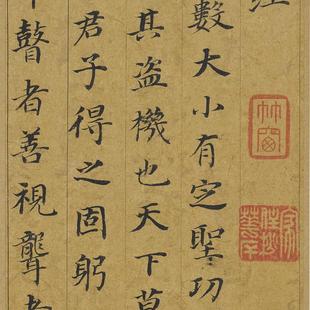 數大小有定聖功
其盜機也天下莫
君子得之固躬
瞽者善視聾者
竹窗